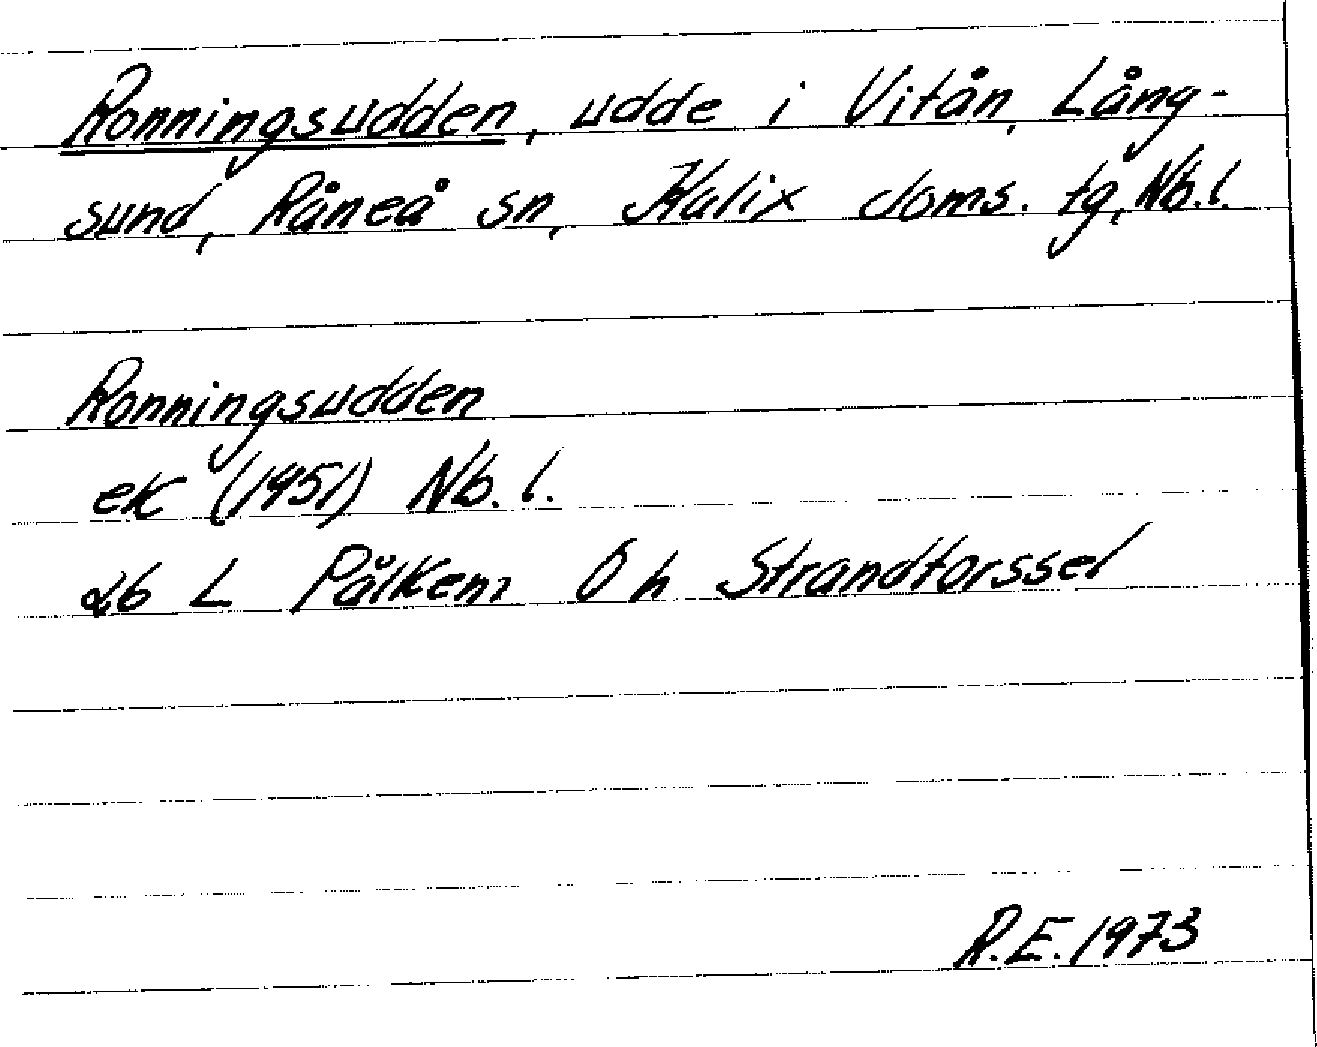 Ronningsudden, udde i Vitån, Lång-
sund, Råneå sn, Kalix doms. tg, Nb.l.
Ronningsudden
ek (1951) Nb. l.
26 L Pålkem Ö h Strandtorssel
R.E. 1973